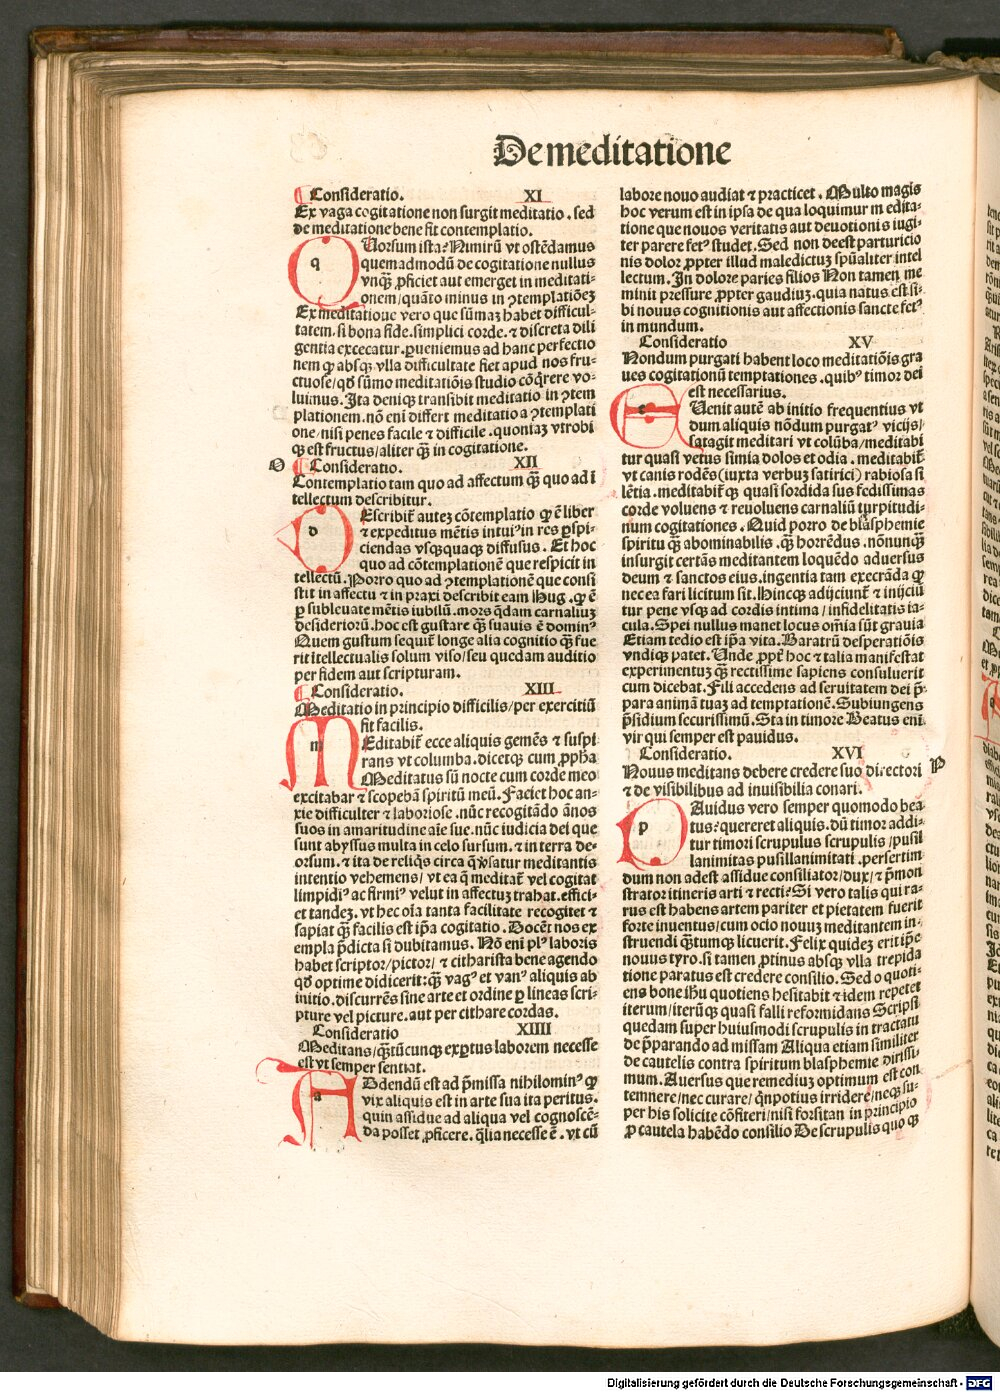 De meditatione
Consideratio. XI
Ex vaga cogitatione non surgit meditatio . sed
de meditatione bene fit contemplatio.
QUorsum ista? Nimirū vt ostēdamus
quemadmodū de cogitatione nullus
vnq̄ꝫ ꝓficiet aut emerget in meditati-
onem/quāto minus in ꝯtemplatiōeꝫ
Ex meditatione vero que sūmaꝫ habet difficul-
tatem. si bona fide. simplici corde. ⁊ discreta dili
gentia exceecatur. ꝑueniemus ad hanc perfectio
nem ꝙ absqꝫ vlla difficultate fiet apud nos fru-
ctuose/qd̓ sūmo meditatiōis studio cōq̄rere vo-
luimus. Ita deniqꝫ transibit meditatio in ꝯtem
plationem. nō eni differt meditatio a ꝯtemplati
one/nisi penes facile ⁊ difficile . quoniaꝫ vtrobi
qꝫ est fructus/aliter q̄ꝫ in cogitatione.
O Consideratio. XII
Contemplatio tam quo ad affectum q̄ꝫ quo ad ī
tellectum describitur.
DEscribit̄ auteꝫ cōtemplatio ꝙ ē liber
⁊ expeditus mētis intuiꝰ in res ꝑspi-
ciendas vsqꝫquaqꝫ diffusus . Et hoc
quo ad cōtemplationē que respicit in
tellectū. Porro quo ad ꝯtemplationē que consi
stit in affectu ⁊ in praxi describit eam Hug . ꝙ ē
ꝑ subleuate mētis iubilū. mors q̄dam carnaliuꝫ
desideriorū. hoc est gustare q̄ꝫ suauis ē dominꝰ
Quem gustum sequit̄ longe alia cognitio q̄ꝫ fue
rit ītellectualis solum viso/seu quedam auditio
per fidem aut scripturam.
Consideratio. XIII
Meditatio in principio difficilis/per exercitiū
fit facilis.
MEditabit̄ ecce aliquis gemēs ⁊ suspi
rans vt columba. dicetqꝫ cum ꝓpha
Meditatus sū nocte cum corde meo
excitabar ⁊ scopebā spiritū meū. Faciet hoc an-
xie difficulter ⁊ laboriose. nūc recogitādo ānos
suos in amaritudine aīe sue. nūc iudicia dei que
sunt abyssus multa in celo sursum. ⁊ in terra de-
orsum. ⁊ ita de reliqs circa q̄ v̓satur meditantis
intentio vehemens/ vt ea q̄ meditat̄ vel cogitat
limpidiꝰ ac firmiꝰ velut in affectuꝫ trahat. effici-
et tandeꝫ. vt hec oīa tanta facilitate recogitet ⁊
sapiat q̄ꝫ facilis est ip̄a cogitatio. Docēt nos ex
empla p̄dicta si dubitamus. Nō eni plꝰ laboris
habet scriptor/pictor/ ⁊ citharista bene agendo
qd̓ optime didicerit: q̄ꝫ vagꝰ et vanꝰ aliquis ab
initio. discurrēs sine arte et ordine ꝑ lineas scri-
pture vel picture. aut per cithare cordas.
Consideratio XIIII
Meditans/q̄ꝫtūcunqꝫ exꝑtus laborem necesse
est vt semper sentiat.
ADdendū est ad p̄missa nihilominꝰ ꝙ
vix aliquis est in arte sua ita peritus.
quin assidue ad aliqua vel cognoscē-
da posset ꝓficere. q̄lia necesse ē. vt cū
labore nouo audiat ⁊ practicet . Multo magis
hoc verum est in ipsa de qua loquimur medita-
tione que nouos veritatis aut deuotionis iugi-
ter parere fetꝰ studet. Sed non deest parturicio
nis dolor ꝓpter illud maledictuꝫ spūaliter intel
lectum. In dolore paries filios Non tamen me
minit pressure ꝓpter gaudiuꝫ. quia natus est si-
bi nouus cognitionis aut affectionis sancte fetꝰ
in mundum.
Consideratio XV
Nondum purgati habent loco meditatiōis gra
ues cogitationū temptationes . quibꝰ timor dei
est necessarius.
EUenit autē ab initio frequentius vt
dum aliquis nōdum purgatꝰ vicijs/
satagit meditari vt colūba/meditabi
tur quasi vetus simia dolos et odia. meditabit̄
vt canis rodēs (iuxta verbuꝫ satirici) rabiosa si
lētia. meditabit̄ qꝫ quasi sordida sus fedissimas
corde voluens ⁊ reuoluens carnaliū turpitudi-
num cogitationes . Quid porro de blasphemie
spiritu q̄ꝫ abominabilis . q̄ꝫ horrēdus. nōnunq̄ꝫ
insurgit certās meditantem loquēdo aduersus
deum ⁊ sanctos eius. ingentia tam execrāda ꝙ
nec ea fari licitum sit. Hincqꝫ adijciunt̄ ⁊ inijciū
tur pene vsqꝫ ad cordis intima / infidelitatis ia-
cula. Spei nullus manet locus om̄ia sūt grauia
Etiam tedio est ip̄a vita. Baratrū desperatiōis
vndiqꝫ patet. Unde ꝓpt̄ hoc ⁊ talia manifestat
experimentuꝫ q̄ꝫ rectissime sapiens consuluerit
cum dicebat. Fili accedens ad seruitatem dei p̄-
para animā tuaꝫ ad temptationē. Subiungens
p̄sidium securissimū. Sta in timore Beatus eni
vir qui semper est pauidus.
Consideratio. XVI
Nouus meditans debere credere suo directori P
⁊ de visibilibus ad inuisibilia conari.
PAuidus vero semper quomodo bea
tus? quereret aliquis. dū timor addi-
tur timori scrupulus scrupulis/pusil
lanimitas pusillanimitati . persertim
dum non adest assidue consiliator/dux/ ⁊ p̄mon
strator itineris arti ⁊ recti? Si vero talis qui ra-
rus est habens artem pariter et pietatem fuerit
forte inuentus/cum ocio nouuꝫ meditantem in-
struendi q̄ꝫtumqꝫ licuerit. Felix quideꝫ erit ip̄e
nouus tyro. si tamen ꝓtinus absqꝫ vlla trepida
tione paratus est credere consilio. Sed o quoti-
ens bone ih̄u quotiens hesitabit ⁊ idem repetet
iterum/iterūqꝫ quasi falli reformidans Scripsi
quedam super huiusmodi scrupulis in tractatu
de p̄parando ad missam Aliqua etiam similiter
de cautelis contra spiritum blasphemie dirissi-
mum. Auersus que remediuꝫ optimum est con
temnere/nec curare/ q̄npotius irridere/neqꝫ su-
per his solicite cōfiteri/nisi forsitan in principio
ꝓ cautela habēdo consilio De scrupulis quo qꝫ
Digitalisierung gefördert durch die Deutsche Forschungsgemeinschaft - DFG